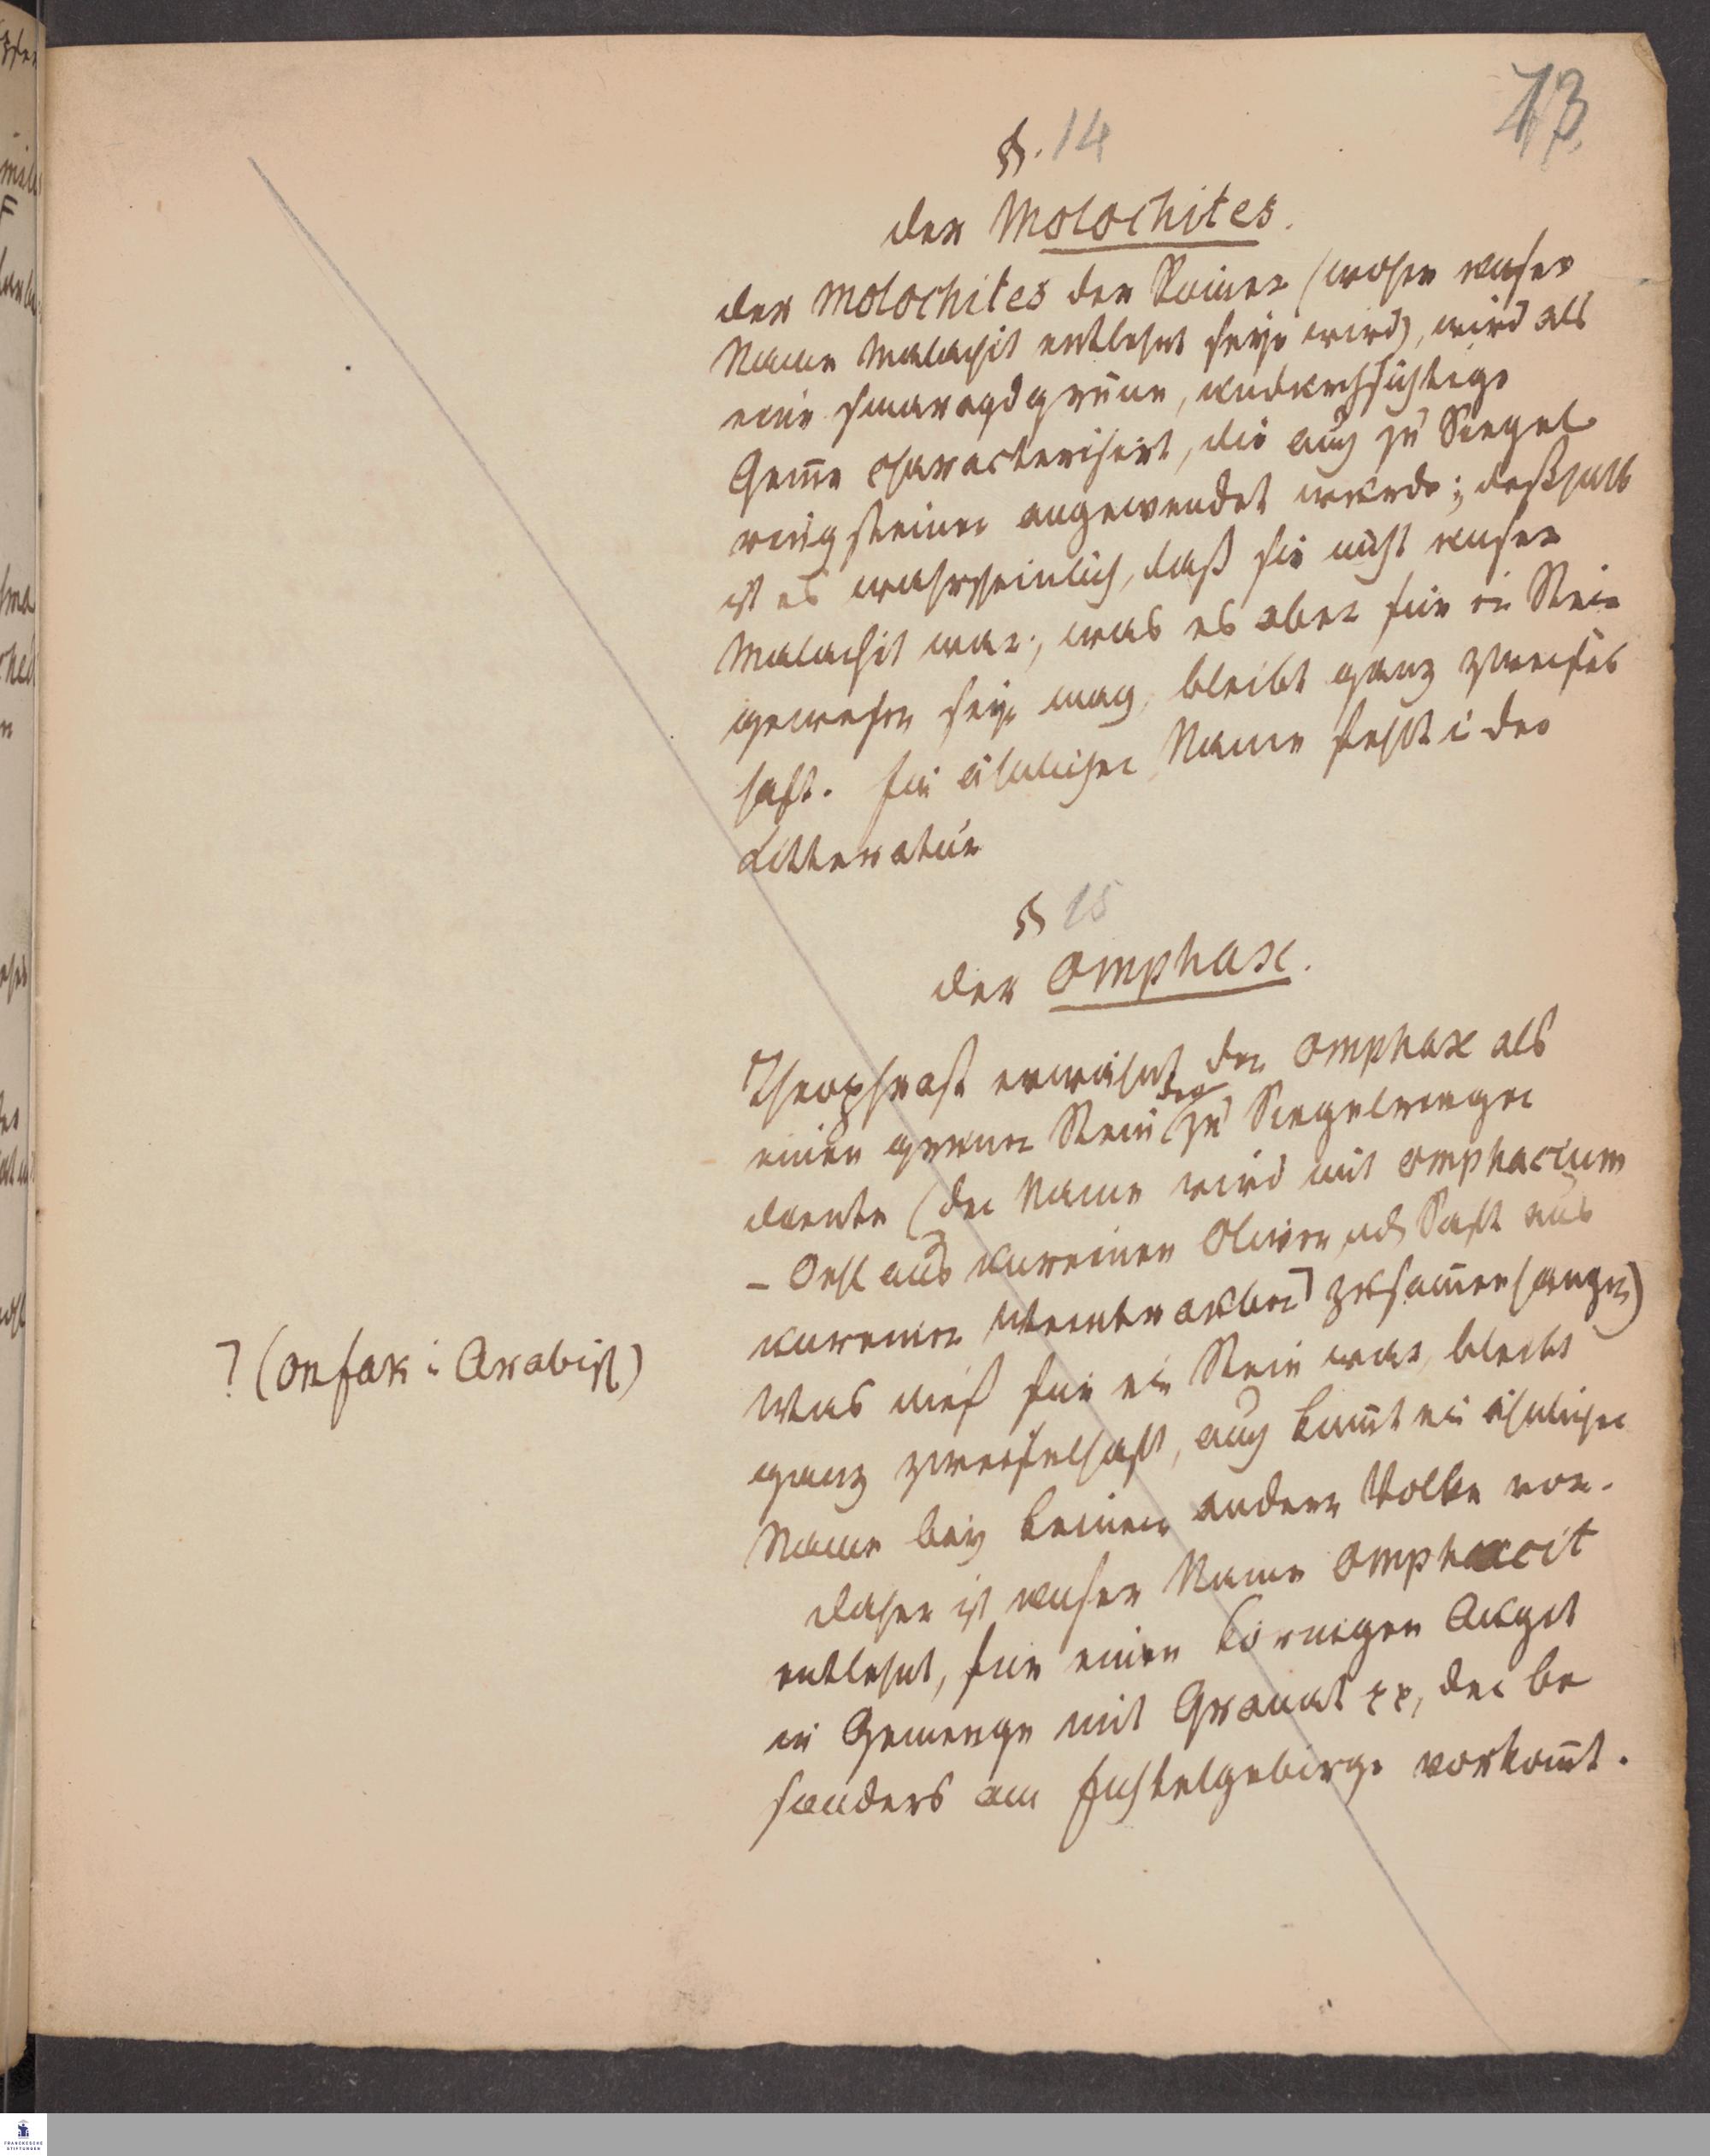 13
§. 14
der Molochites.
der Molochites der Römer (woher unser
Name Malachit entlehnt seyn wird), wird als
eine smaragdgrüne, undurchsichtige
Gem̄e characterisirt, die auch zu Siegel
ringsteinen angewendet wurde; deßhalb
ist es wahrscheinlich, daß sie nicht unser
Malachit war; was es aber für ein Stein
gewesen seyn mag, bleibt ganz zweifel
haft. Ein ähnlicher Name fehlt i der
Litteratur
§ 15
der Omphax.
Theophrast erwähnt den Omphax als
einen grünen Stein der zu Siegelringen
diente (der Name wird mit omphacium
– Oehl aus unreinen Oliven ud Saft aus
unreinen Weintrauben ⁊ zusam̄enhangen)
⁊ (onfak i Arabisch)
Was dieß für ein Stein war, bleibt
ganz zweifelhaft, auch kom̄t ein ähnlicher
Name bey keinem andern Volke vor.
daher ist unser Name Omphacit
entlehnt, für einen körnigen Augit
in Gemenge mit Granat pp, der be
sonders am Fichtelgebirge vorkom̄t.
FRANCKESCHE
STIFTUNGEN